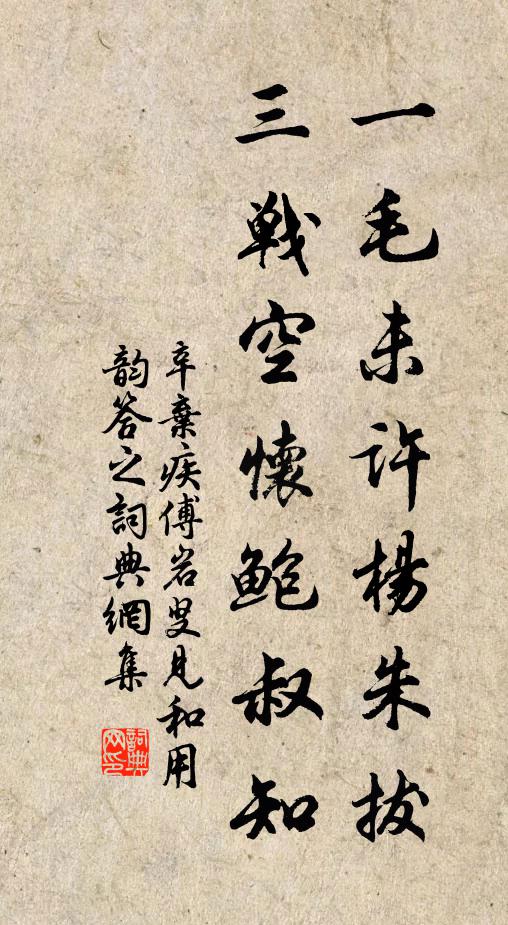 一毛未許楊朱拔
三戰空懷鮑叔知
辛棄疾傅岩叟見和用
韵答之詞典網集
詞典網印